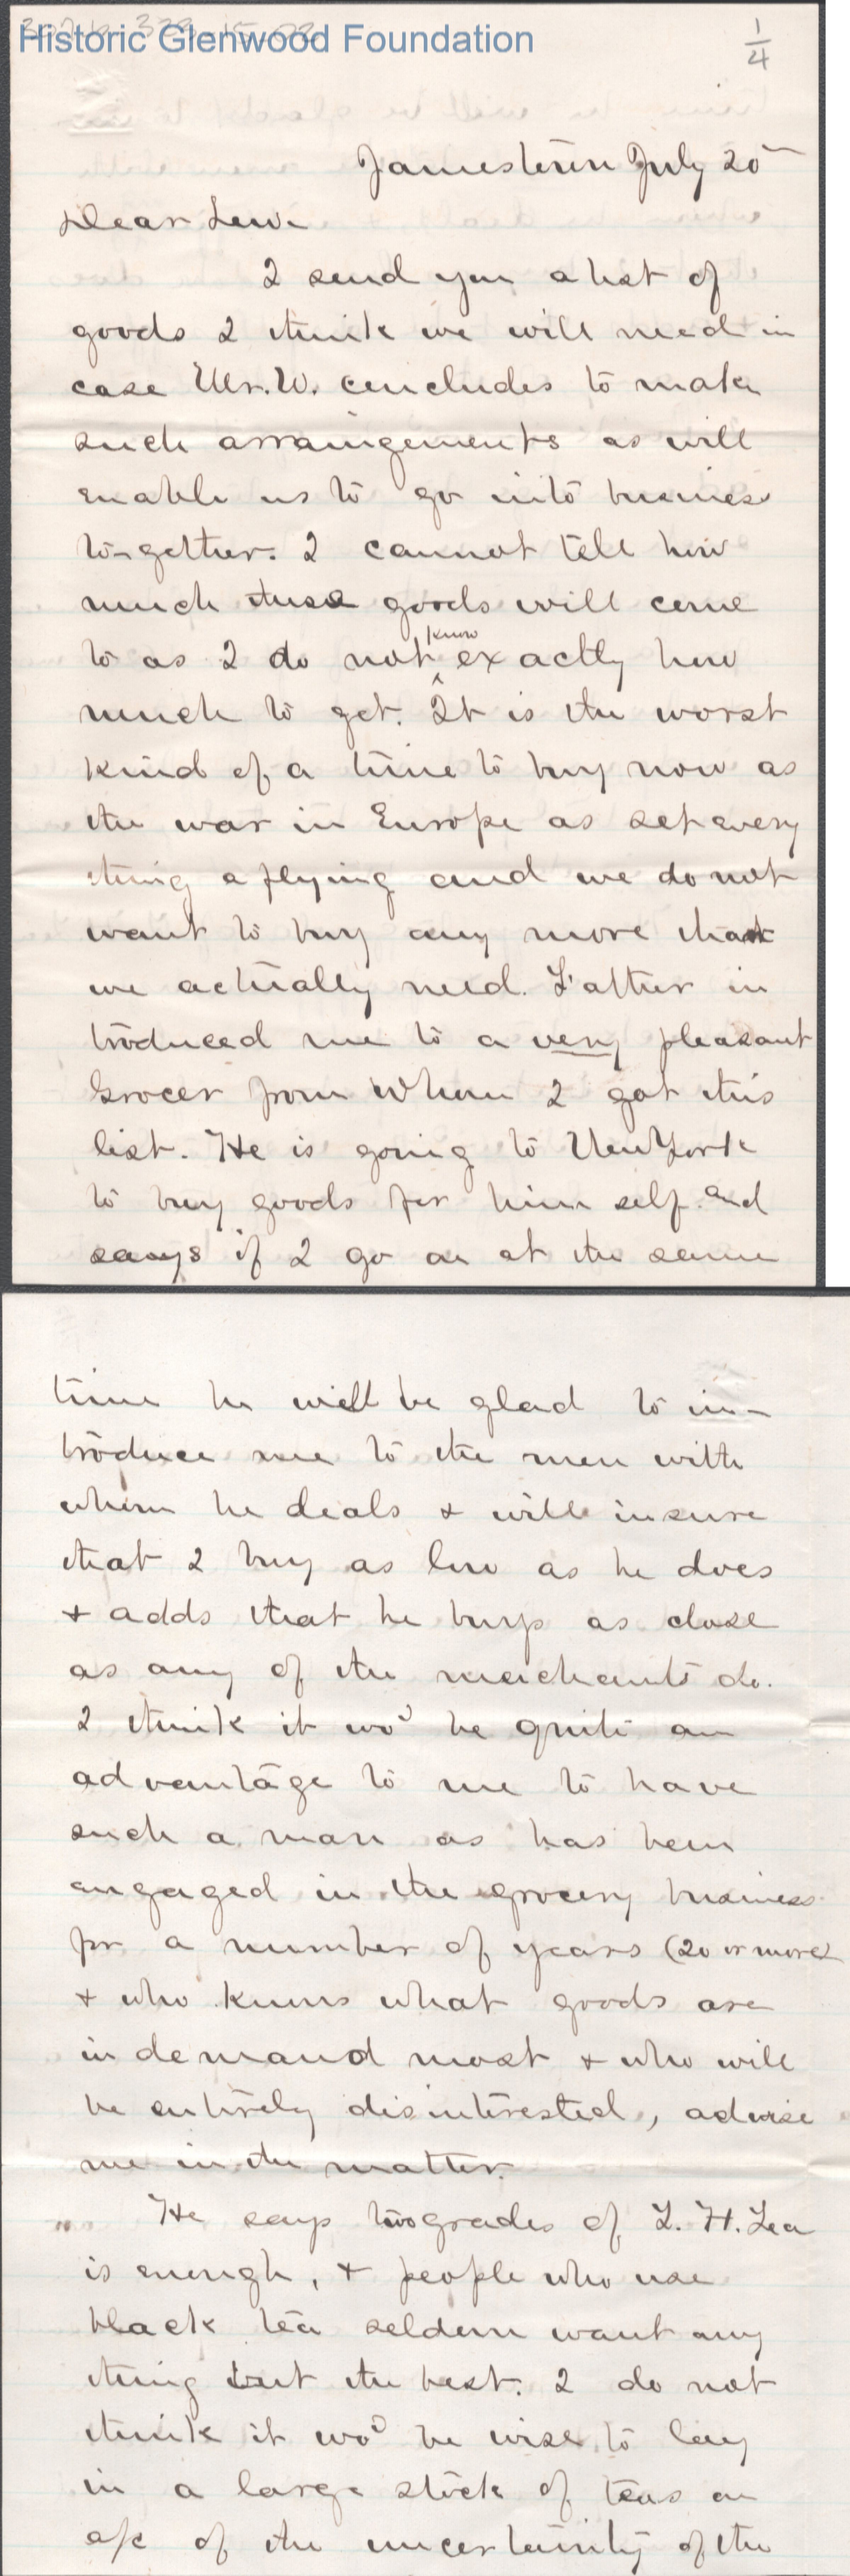 Historic Glenwood Foundation
1/4
Jamestown July 20
Dear Lew.
I send you a list of
goods I think we will need in
case Mr. W. concludes to make
such arraingements as will
enable us to go into business
to-gether. I cannot tell how
much these goods will come
to as I do not know exactly how
much to get. It is the worst
kind of a time to buy now as
the war in Europe as set every
thing a flying and we do not
want to buy any more than
we actually need. Father in
troduced me to a very pleasant
Grocer from whom I got this
list. He is going to New York
to buy goods for him self and
says if I go on at the same
time he will be glad to in-
troduce me to the men with
whom he deals & will insure
that I buy as low as he does
& adds that he buys as close
as any of the merchants do.
I think it wod be quite an
advantage to me to have
such a man as has been
engaged in the grocery business
for a number of years (20 or more)
& who knows what goods are
in demand most & who will
be entirely disinterested, advise
me in the matter.
He says two grades of Y. H. Tea
is enough, & people who use
black tea seldom want any
thing but the best. I do not
think it wod be wise to lay
in a large stock of teas on
a/c of the uncertainty of the